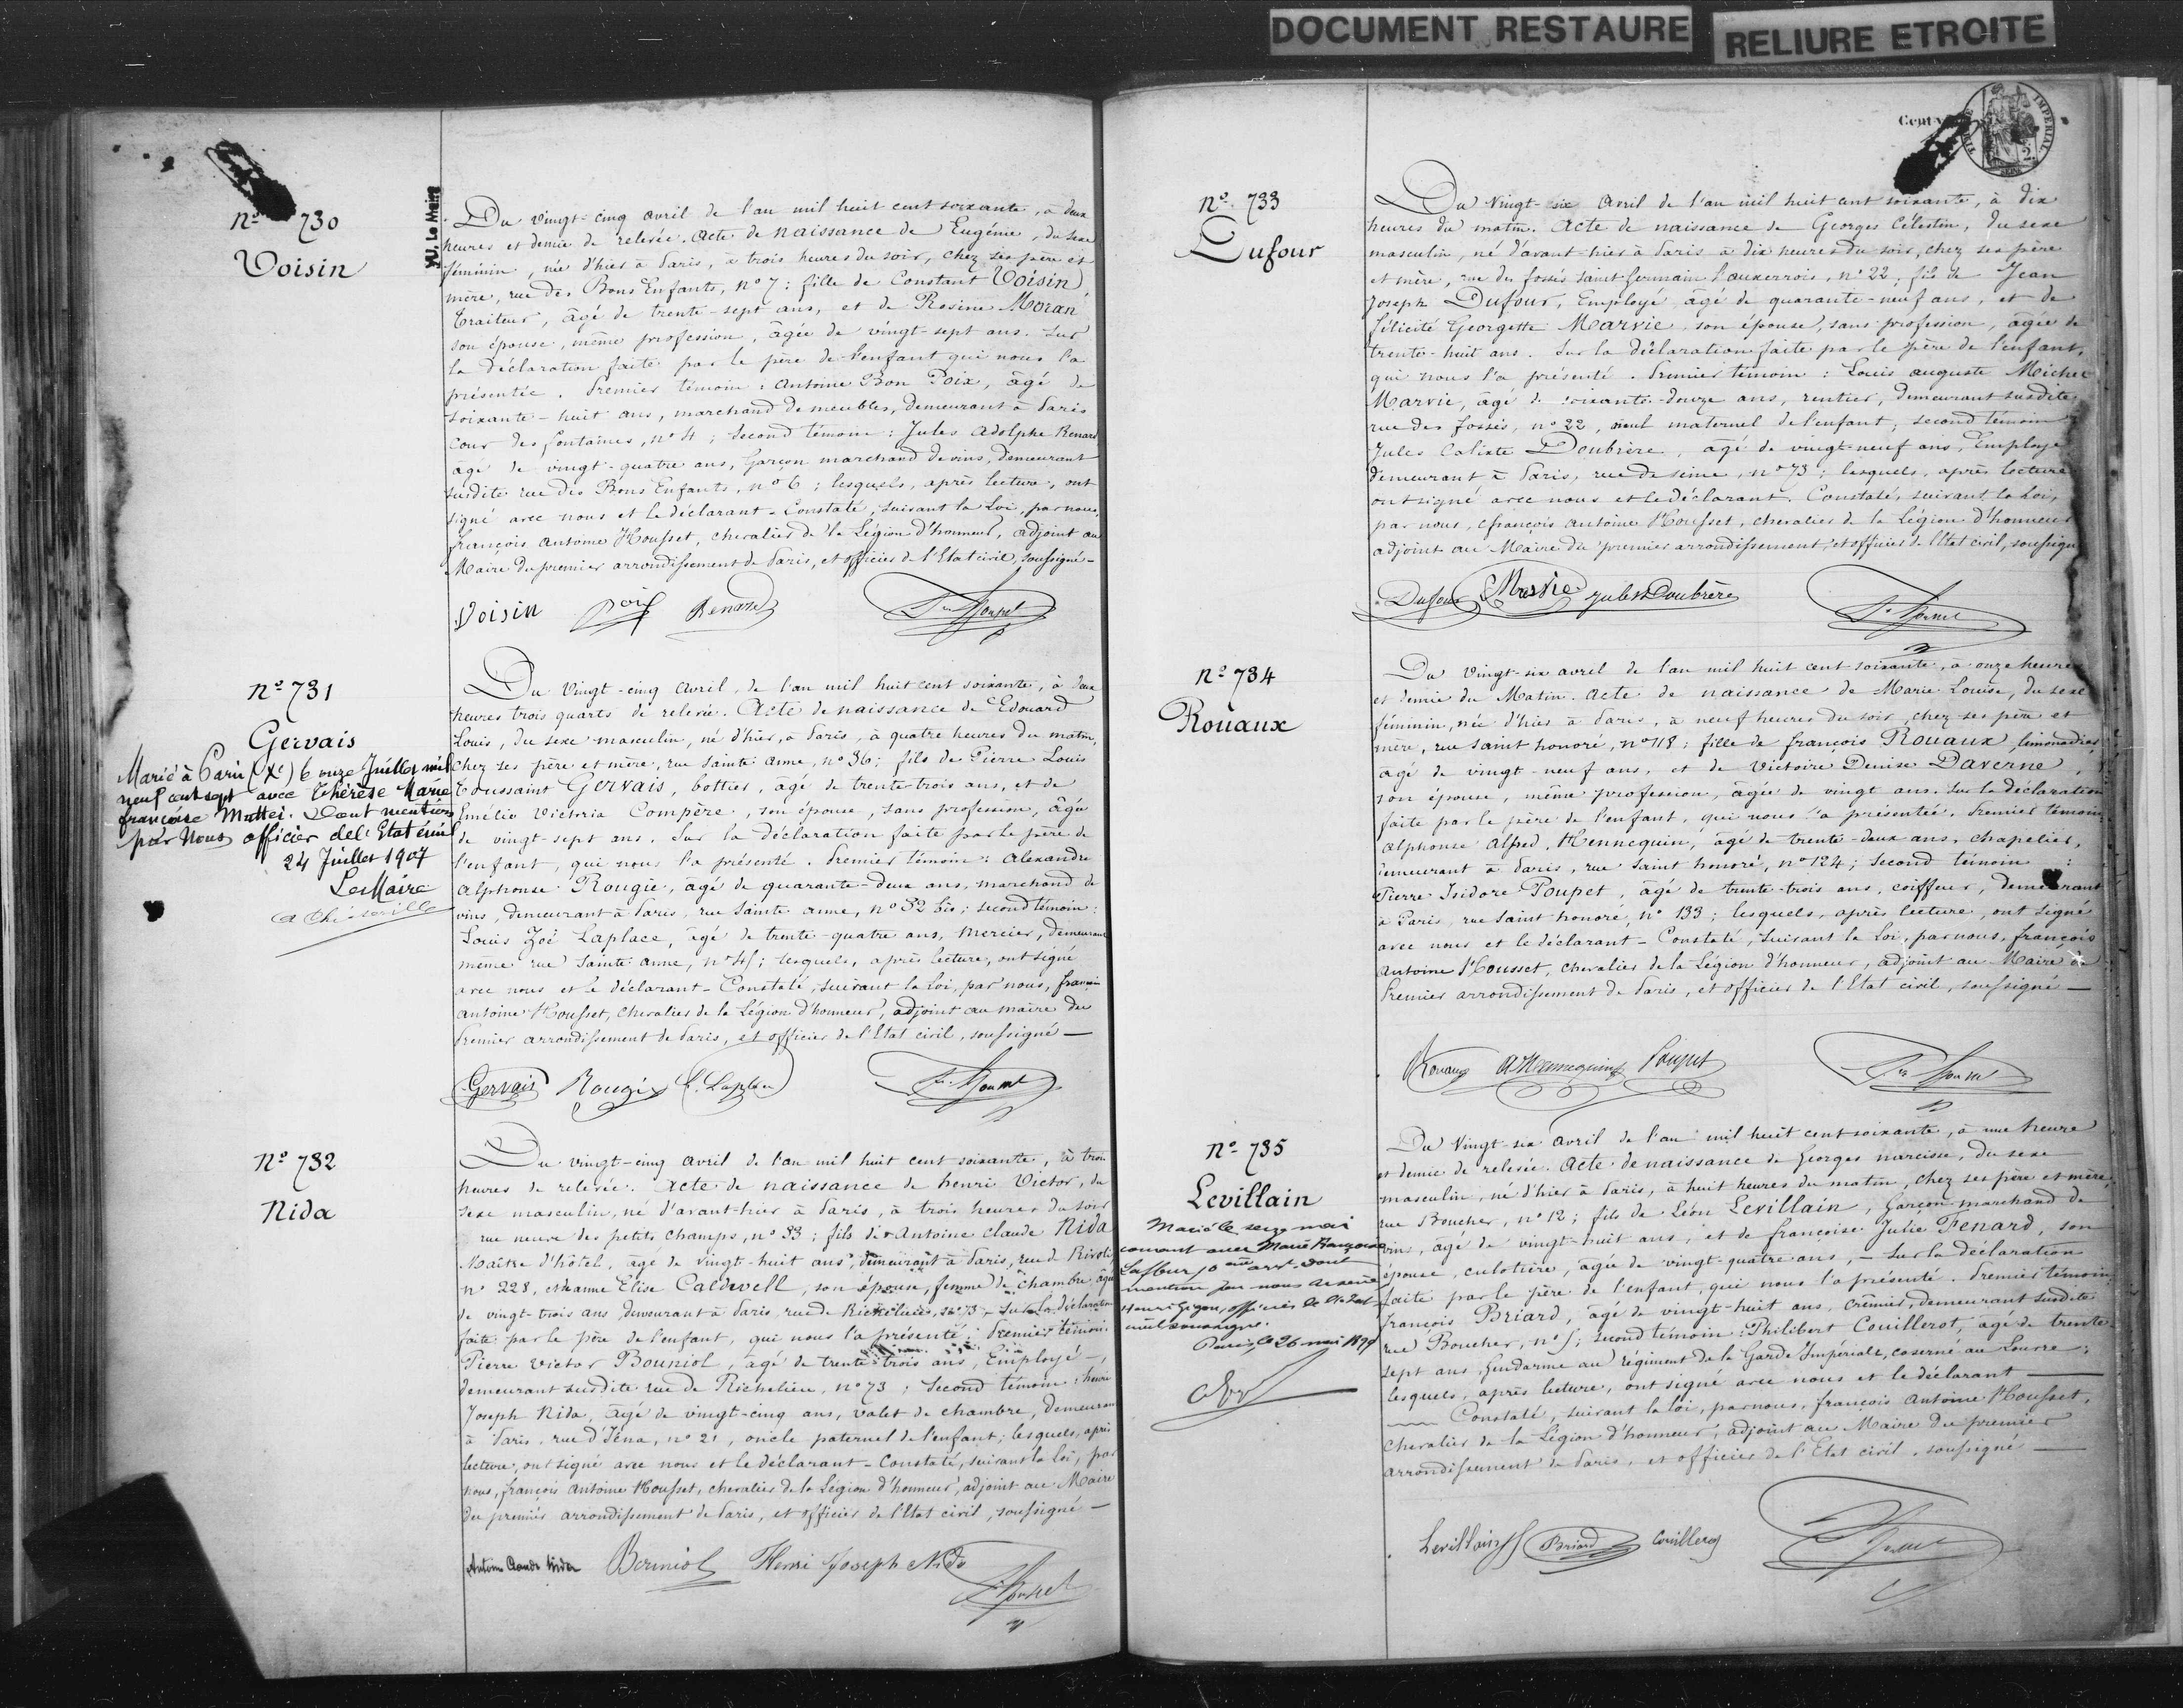 DOCUMENT RESTAURE
RELIURE ETROITE
VU, Le Maire
Nº 730
Voisin
Du vingt-cinq avril de l'an mil huit cent soixante, à deux
heures et demie de relevée. Acte de naissance de Eugénie, du sexe
féminin, née d'hier à Paris, à trois heures du soir, chez ses père et
mère, rue des Bons Enfants, nº 7 ; fille de Constant Voisin
traiteur, âgé de trente-sept ans, et de Rosine Moran
son épouse, même profession, âgée de vingt-sept ans. Sur
la déclaration faite par le père de l'enfant qui nous l'a
présentée. Premier témoin : Antoine Bon Poix, âgé de
soixante-huit ans, marchand de meubles, demeurant à Paris
cour des fontaines, nº 4 ; second témoin : Jules Adolphe Renard
âgé de vingt-quatre ans, Garçon marchand de vins, demeurant
susdite rue des Bons Enfants, nº 6 ; lesquels, après lecture, ont
signé avec nous et le déclarant - Constaté, suivant la Loi, par nous,
françois Antoine Housset, chevalier de la Légion d'honneur, adjoint au
Maire du premier arrondissement de Paris, et officier de l'Etat civil, soussigné -
Voisin Poix Renard
Nº 731
Gervais
Marié à Paris (Xe) le onze Juillet mil
neuf cent sept avec Thérèse Marie
françoise Mattei. Dont mention
par Nous officier de l'Etat civil
24 Juillet 1907
Le Maire
Du vingt-cinq avril, de l'an mil huit cent soixante, à deux
heures trois quarts de relevée. Acte de naissance de Edouard
Louis, du sexe masculin, né d'hier, à Paris, à quatre heures du matin,
chez ses père et mère, rue Sainte anne, nº 36 ; fils de Pierre Louis
Toussaint Gervais, bottier, âgé de trente-trois ans, et de
Emélie Victoria Compère, son épouse, sans profession, âgée
de vingt-sept ans. Sur la déclaration faite par le père de
l'enfant, qui nous l'a présenté. Premier témoin : Alexandre
Alphonse Rougie, âgé de quarante-deux ans, marchand de
vins, demeurant à Paris, rue Sainte anne, nº 32 bis ; second témoin :
Louis Zoé Laplace, âgé de trente-quatre ans, Mercier, demeurant
même rue Sainte anne, nº 45 ; lesquels, après lecture, ont signé
avec nous et le déclarant - Constaté, suivant la Loi, par nous, françois
antoine Housset, chevalier de la Légion d'honneur, adjoint au maire du
Premier arrondissement de Paris, et officier de l'Etat civil, soussigné -
Gervais Rougie L. Laplace
Nº 732
Nida
Du vingt-cinq avril de l'an mil huit cent soixante, à trois
heures de relevée. Acte de naissance de henri Victor, du
sexe masculin, né d'avant-hier à Paris, à trois heures du soir
rue neuve des petits champs, nº 33 ; fils de Antoine claude Nida
Maître d'hôtel, âgé de vingt-huit ans, demeurant à Paris, rue de Rivoli
nº 228, et Anne Elise Caldwell, son épouse, femme de chambre, âgée
de vingt-trois ans demeurant à Paris, rue de Richelieu, nº 73 - Sur la déclaration
faite par le père de l'enfant, qui nous l'a présenté. Premier témoin :
Pierre Victor Bouniol, âgé de trente-trois ans, Employé -
demeurant susdite rue de Richelieu, nº 73 ; Second témoin : henri
Joseph Nida, âgé de vingt-cinq ans, valet de chambre, demeurant
à Paris, rue d'Iéna, nº 21, oncle paternel de l'enfant ; lesquels, après
lecture, ont signé avec nous et le déclarant - Constaté, suivant la loi, par
nous, françois Antoine Housset, chevalier de la Légion d'honneur, adjoint au Maire
du premier arrondissement de Paris, et officier de l'Etat civil, soussigné -
Antoine Claude Nida Bouniol Henri Joseph Nida
TIMBRE IMPERIAL
SEINE
Nº 733
Dufour
Du Vingt-six Avril de l'an mil huit cent soixante, à dix
heures du matin. Acte de naissance de Georges Célestin, du sexe
masculin, né d'avant-hier à Paris à dix heures du soir, chez ses père
et mère, rue des fossés saint Germain l'auxerrois, nº 22 ; fils de Jean
Joseph Dufour, Employé âgé de quarante-neuf ans, et de
félicité Georgette Marvie, son épouse, sans profession, âgée de
trente-huit ans. Sur la déclaration faite par le père de l'enfant,
qui nous l'a présenté. Premier témoin : Louis auguste Michel
Marvie, âgé de soixante-douze ans, rentier, demeurant susdite
rue des fossés, nº 22, aïeul maternel de l'enfant, second témoin
Jules Calixte Doubrère, âgé de vingt-neuf ans, Employé
demeurant à Paris, rue de seine, nº 73 ; lesquels, après lecture
ont signé avec nous et le déclarant. Constaté, suivant la Loi,
par nous, françois Antoine Housset, chevalier de la Légion d'honneur
adjoint au Maire du premier arrondissement, et officier de l'Etat civil, soussigné
Dufour Marvie Jules Doubrère
Nº 734
Rouaux
Du Vingt-six avril de l'an mil huit cent soixante, à onze heures
et demie du Matin. Acte de naissance de Marie Louise, du sexe
féminin, née d'hier à Paris, à neuf heures du soir, chez ses père et
mère, rue Saint honoré, nº 118 ; fille de françois Rouaux, limonadier
âgé de vingt-neuf ans, et de Victoire Denise Daverne,
son épouse, même profession, âgée de vingt ans. Sur la déclaration
faite par le père de l'enfant, qui nous l'a présentée. Premier témoin
Alphonse Alfred Hennequin, âgé de trente-deux ans, chapelier,
demeurant à Paris, rue Saint honoré, nº 124 ; Second témoin :
Pierre Isidore Poupet, âgé de trente-trois ans, coiffeur, demeurant
à Paris, rue Saint honoré, nº 133 ; lesquels, après lecture, ont signé
avec nous et le déclarant - Constaté, suivant la Loi, par nous, françois
Antoine Housset, chevalier de la Légion d'honneur, adjoint au Maire du
Premier arrondissement de Paris, et officier de l'Etat civil, soussigné -
Rouaux A Hennequin Poupet
Nº 735
Levillain
Marié le seize mai
courant avec Marie Françoise
Lafleur 10 arrt dont
mention par nous
officier de l'Etat
civil soussigné.
Paris, le 26 mai 1899
Du Vingt-six avril de l'an mil huit cent soixante, à une heure
et demie de relevée. Acte de naissance de Georges narcisse, du sexe
masculin, né d'hier à Paris, à huit heures du matin, chez ses père et mère,
rue Boucher, nº 12 ; fils de Léon Levillain, Garçon marchand de
vins, âgé de vingt-huit ans, et de francoise Julie Fenard, son
épouse, culotière, âgée de vingt-quatre ans, - Sur la déclaration
faite par le père de l'enfant, qui nous l'a présenté. Premier témoin
françois Briard, âgé de vingt-huit ans, crêmier, demeurant susdite
rue Boucher, nº 5 ; second témoin : Philibert Couillerot, âgé de trente-
sept ans, Gendarme au régiment de la Garde Impériale, caserné au Louvre ;
lesquels, après lecture, ont signé avec nous et le déclarant -
Constaté, suivant la loi, par nous, françois Antoine Housset,
Chevalier de la Légion d'honneur, adjoint au Maire du premier
arrondissement de Paris, et officier de l'Etat civil, soussigné -
Levillain Briard Couillerot